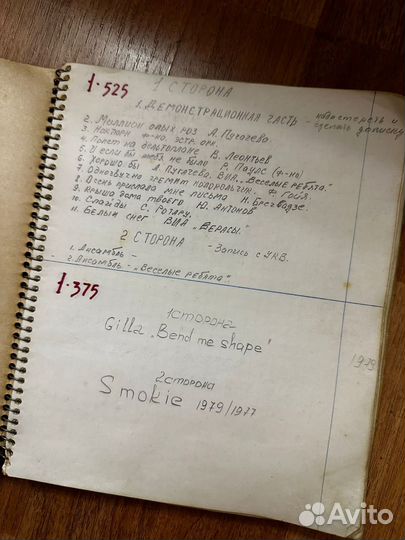 1·525
1 СТОРОНА
1. ДЕМОНСТРАЦИОННАЯ ЧАСТЬ -
сделать записку
2. Миллион алых роз А. Пугачева.
3. Ноктюрн ф-но. эстр. орк.
4. Полет на дельтоплане В. Леонтьев
5. И если бы не было Р. Паулс (ф-но)
6. Хорошо бы А. Пугачева, ВИА „Веселые ребята".
7. Однозвучно гремит колокольчик.
8. Осень прислала мне письма Н. Брегвадзе.
9. Крыша дома твоего Ю. Антонов
10. Слайды С. Ротару.
11. Белый снег ВИА „Верасы"
2 СТОРОНА - Запись с УКВ.
1. Ансамбль -
2. Ансамбль - „Веселые ребята"
1·375
1 сторона
Gilla „Bend me shape"
1979
2 сторона
Smokie 1979/1977
Avito